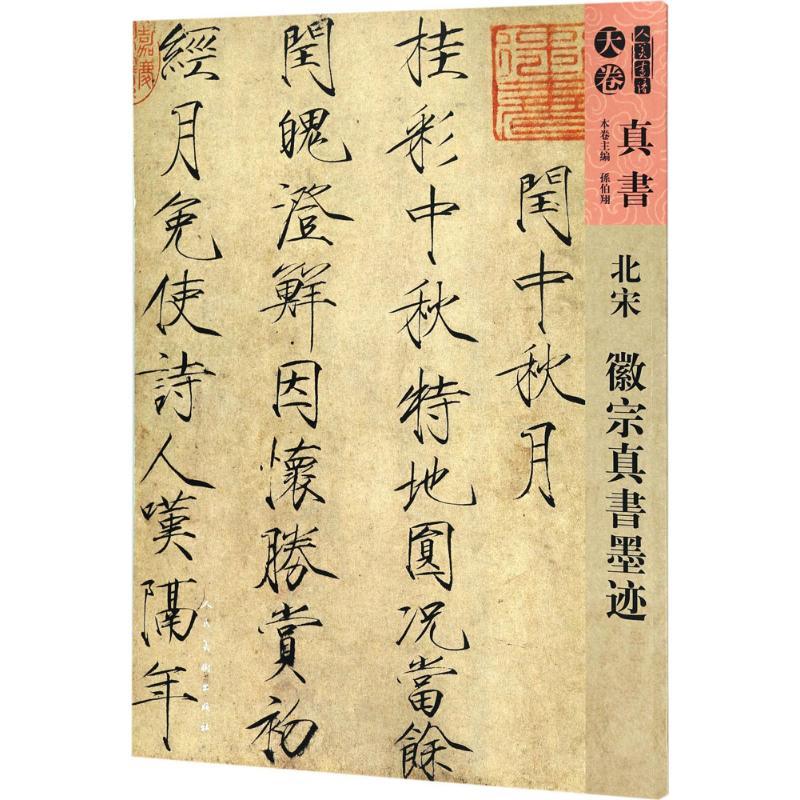 人美書譜
天卷
真書
本卷主編 孫伯翔
北宋
徽宗真書墨迹
御書
閏中秋月
桂彩中秋特地圓況當餘
閏魄澄鮮因懷勝賞初
經月免使詩人嘆隔年
嘉慶
人民美術出版社